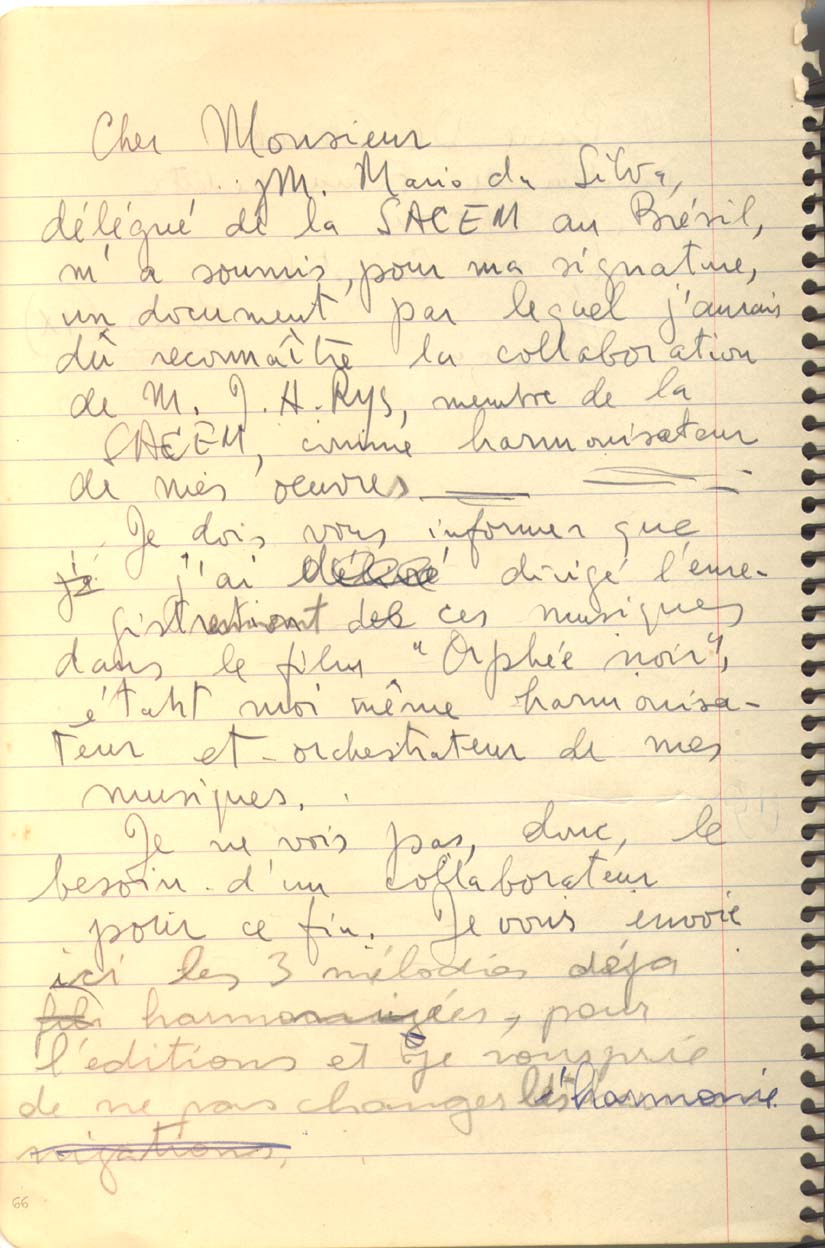 Cher Monsieur
M. Mario da Silva,
délégué de la SACEM au Brésil,
m'a soumis, pour ma signature,
un document par lequel j'aurais
dû reconnaître la collaboration
de M. J. H. Rys, membre de la
SACEM, comme harmonisateur
de mes oeuvres
Je dois vous informer que
je j'ai dirigé l'enre-
gistrement de ces musiques
dans le film "Orphée noir",
étant moi même harmonisa-
teur et orchestrateur de mes
musiques.
Je ne vois pas, donc, le
besoin d'un collaborateur
pour ce fin. Je vous envoie
ici les 3 mélodies déja
harmonizées, pour
l'éditions et je vous prie
de ne pas changer l'harmonie
nizations.
66